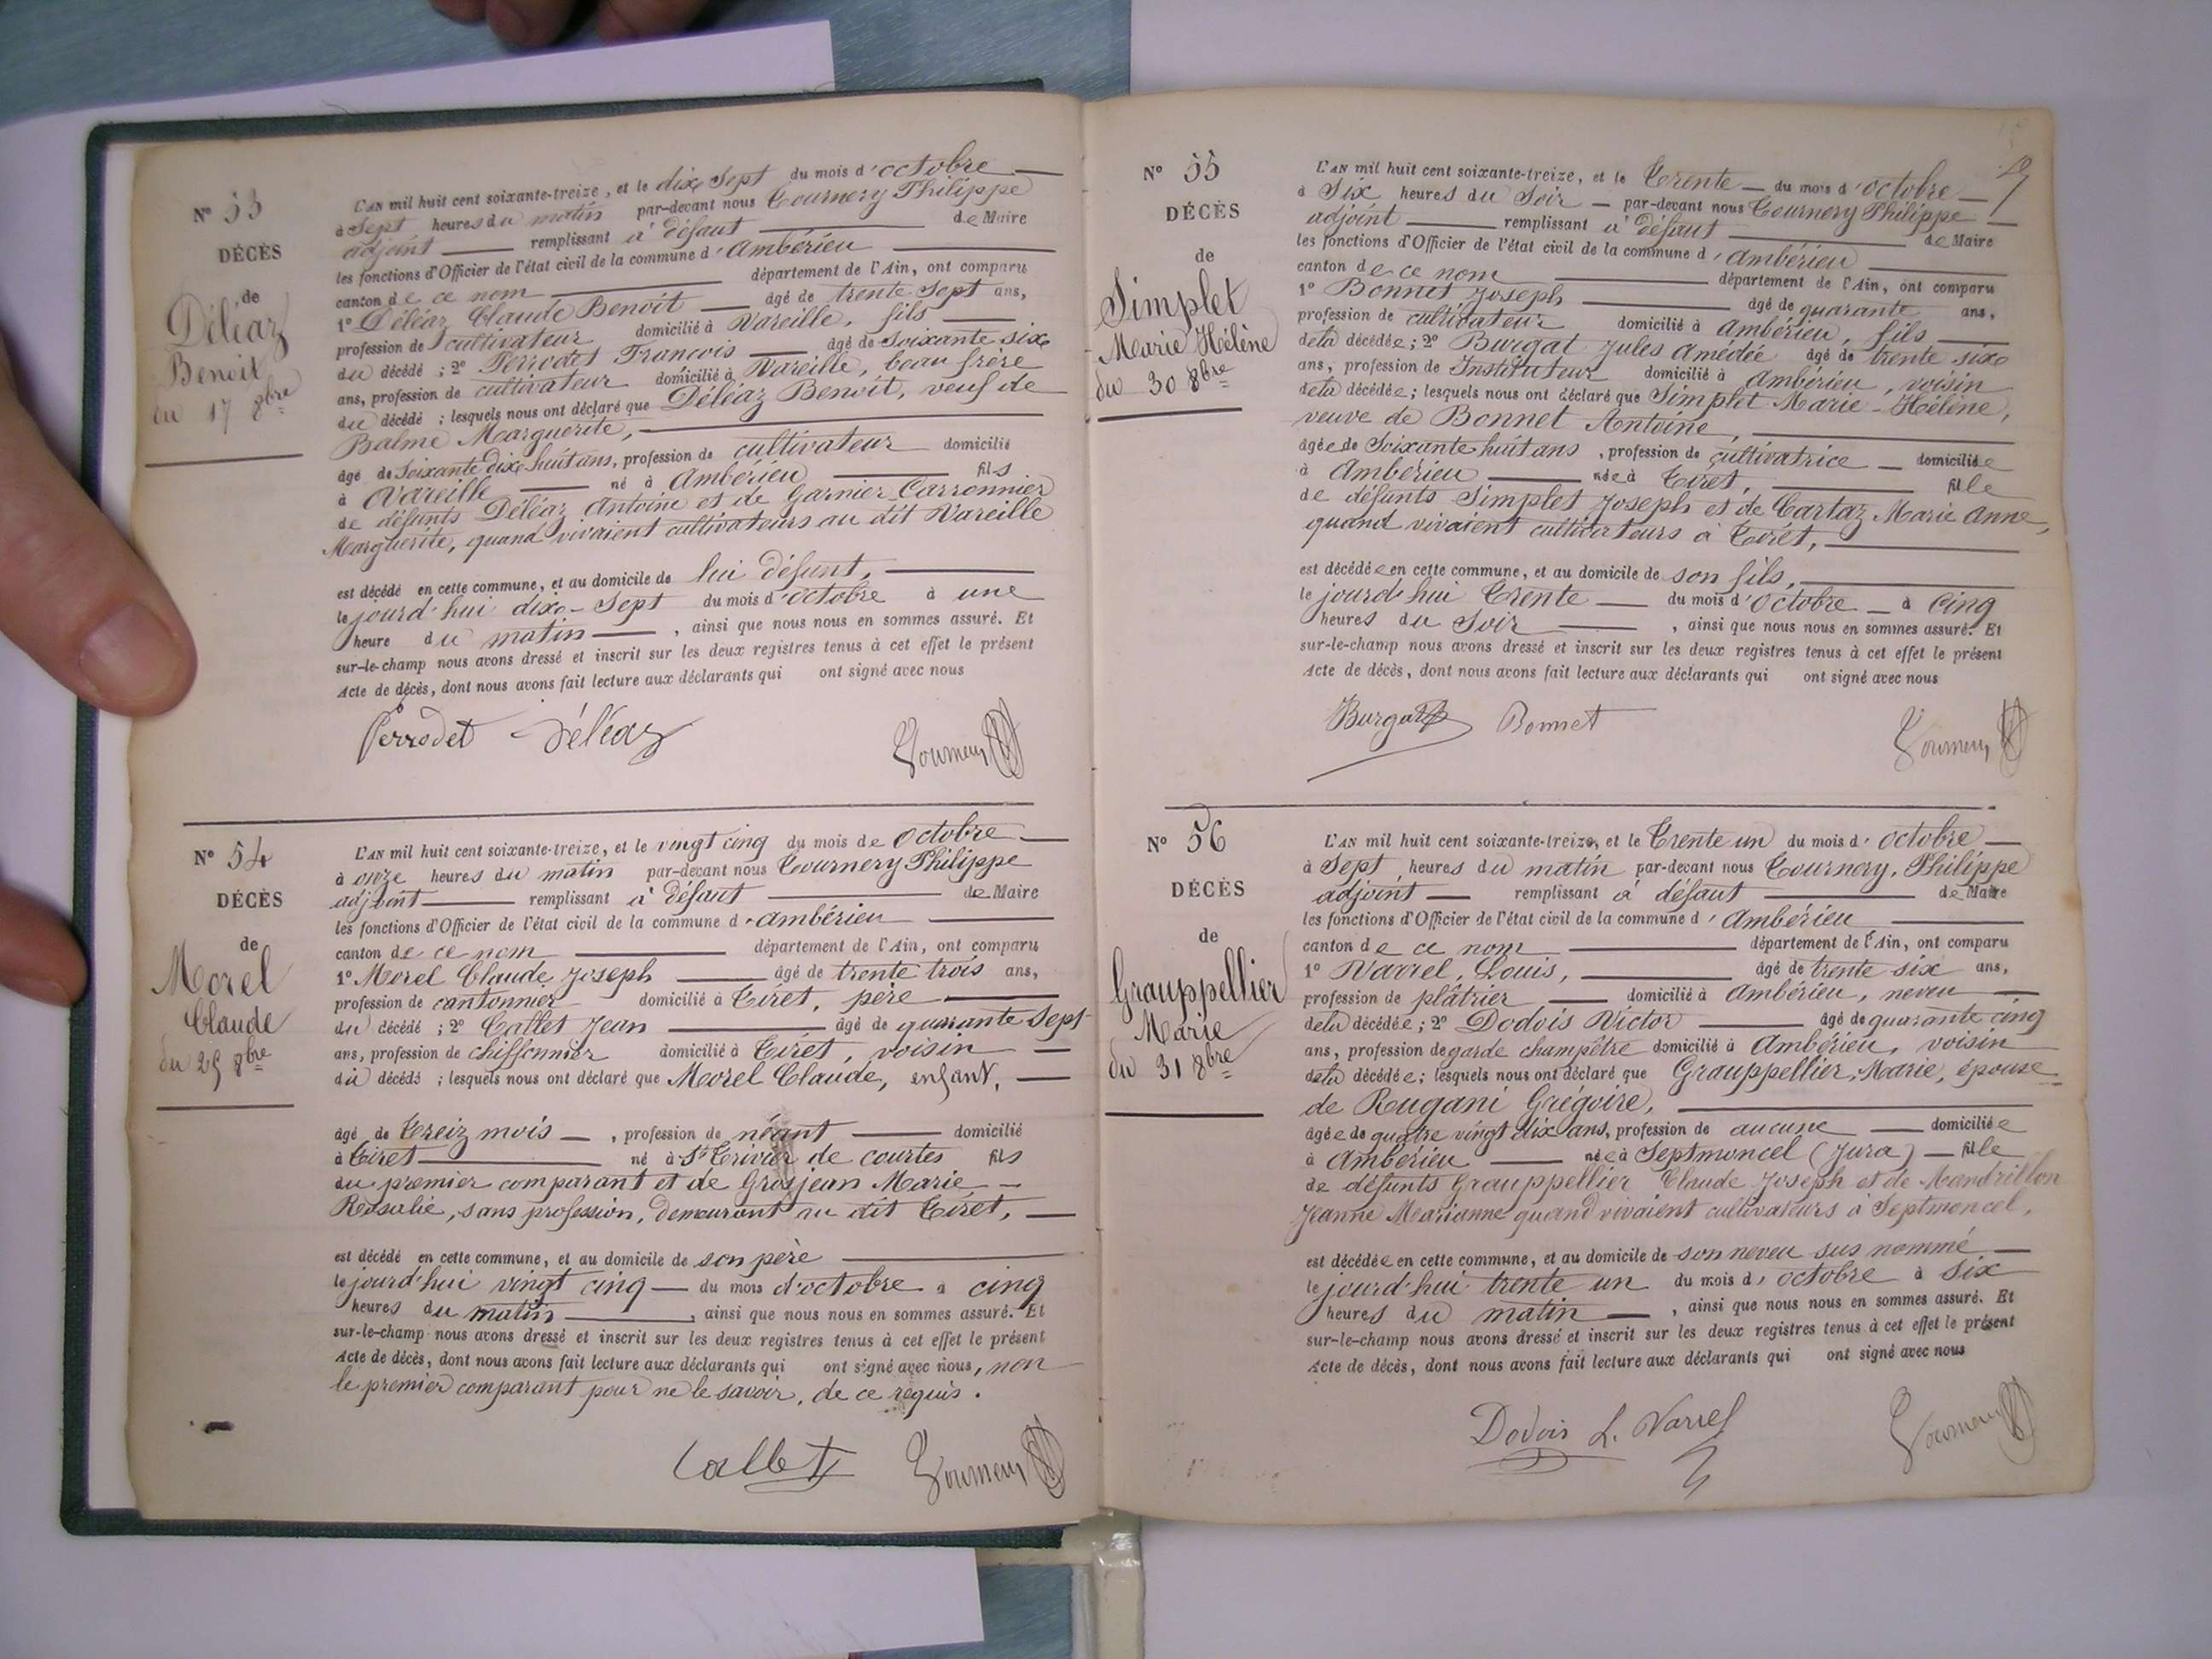 N° 53
DÉCÈS
de
Déléaz
Benoit
du 17 8bre
L'AN mil huit cent soixante-treize, et le dix Sept du mois d'octobre
à Sept heures du matin par-devant nous Tournery Philippe
adjoint remplissant à défaut de Maire
les fonctions d'Officier de l'état civil de la commune d'Ambérieu
canton de ce nom département de l'Ain, ont comparu
1° Déléaz Claude Benoit âgé de trente Sept ans,
profession de cultivateur domicilié à Vareille, fils
du décédé ; 2° Perrodet François âgé de Soixante six
ans, profession de cultivateur domicilié à Vareille, beau frère
du décédé ; lesquels nous ont déclaré que Déléaz Benoit, veuf de
Balme Marguerite,
âgé de Soixante dix huit ans, profession de cultivateur domicilié
à Vareille né à Ambérieu fils
de défunts Déléaz Antoine et de Garnier Carronnier
Marguerite, quand vivaient cultivateurs au dit Vareille
est décédé en cette commune, et au domicile de lui défunt,
lejourd'hui dix-Sept du mois d'octobre à une
heure du matin, ainsi que nous nous en sommes assuré. Et
sur-le-champ nous avons dressé et inscrit sur les deux registres tenus à cet effet le présent
Acte de décès, dont nous avons fait lecture aux déclarants qui ont signé avec nous
Perrodet Déléaz Tournery
N° 54
DÉCÈS
de
Morel
Claude
du 25 8bre
L'AN mil huit cent soixante-treize, et le vingt cinq du mois de Octobre
à onze heures du matin par-devant nous Tournery Philippe
adjoint remplissant à défaut de Maire
les fonctions d'Officier de l'état civil de la commune d'ambérieu
canton de ce nom département de l'Ain, ont comparu
1° Morel Claude Joseph âgé de trente trois ans,
profession de cantonnier domicilié à Tiret, père
du décédé ; 2° Callet Jean âgé de quarante Sept
ans, profession de chiffonnier domicilié à Tiret, voisin
du décédé ; lesquels nous ont déclaré que Morel Claude, enfant,
âgé de Treiz mois, profession de néant domicilié
à Tiret né à St Trivier de courtes fils
du premier comparant et de Grosjean Marie
Rosalie, sans profession, demeurant au dit Tiret,
est décédé en cette commune, et au domicile de son père
lejourd'hui vingt cinq du mois d'octobre à cinq
heures du matin, ainsi que nous nous en sommes assuré. Et
sur-le-champ nous avons dressé et inscrit sur les deux registres tenus à cet effet le présent
Acte de décès, dont nous avons fait lecture aux déclarants qui ont signé avec nous, non
le premier comparant pour ne le savoir, de ce requis.
Callet Tournery
N° 55
DÉCÈS
de
Simplet
Marie Hélène
du 30 8bre
L'AN mil huit cent soixante-treize, et le Trente du mois d'octobre
à Six heures du Soir par-devant nous Tournery Philippe
adjoint remplissant à défaut de Maire
les fonctions d'Officier de l'état civil de la commune d'Ambérieu
canton de ce nom département de l'Ain, ont comparu
1° Bonnet Joseph âgé de quarante ans,
profession de cultivateur domicilié à Ambérieu, fils
dela décédée ; 2° Burgat Jules Amédée âgé de trente six
ans, profession de Instituteur domicilié à Ambérieu, voisin
dela décédée ; lesquels nous ont déclaré que Simplet Marie-Hélène,
veuve de Bonnet Antoine,
âgée de Soixante huit ans, profession de cultivatrice domiciliée
à Ambérieu née à Tiret, fille
de défunts Simplet Joseph et de Cartaz Marie Anne,
quand vivaient cultivateurs à Tiret,
est décédée en cette commune, et au domicile de son fils,
lejourd'hui Trente du mois d'Octobre à Cinq
heures du Soir, ainsi que nous nous en sommes assuré. Et
sur-le-champ nous avons dressé et inscrit sur les deux registres tenus à cet effet le présent
Acte de décès, dont nous avons fait lecture aux déclarants qui ont signé avec nous
Burgat Bonnet Tournery
N° 56
DÉCÈS
de
Grauppellier
Marie
du 31 8bre
L'AN mil huit cent soixante-treize, et le Trente un du mois d'octobre
à Sept heures du matin par-devant nous Tournery, Philippe
adjoint remplissant à défaut de Maire
les fonctions d'Officier de l'état civil de la commune d'Ambérieu
canton de ce nom département de l'Ain, ont comparu
1° Varrel, Louis, âgé de trente six ans,
profession de plâtrier, domicilié à Ambérieu, neveu
dela décédée ; 2° Dodois Victor âgé de quarante cinq
ans, profession de garde champêtre domicilié à Ambérieu, voisin
dela décédée ; lesquels nous ont déclaré que Grauppellier, Marie, épouse
de Rugani Grégoire,
âgée de quatre vingt dix ans, profession de aucune domiciliée
à Ambérieu née à Septmoncel (Jura) fille
de défunts Grauppellier Claude Joseph et de Mandrillon
Jeanne Marianne quand vivaient cultivateurs à Septmoncel,
est décédée en cette commune, et au domicile de son neveu sus nommé
lejourd'hui trente un du mois d'octobre à Six
heures du matin, ainsi que nous nous en sommes assuré. Et
sur-le-champ nous avons dressé et inscrit sur les deux registres tenus à cet effet le présent
Acte de décès, dont nous avons fait lecture aux déclarants qui ont signé avec nous
Dodois L. Varrel Tournery